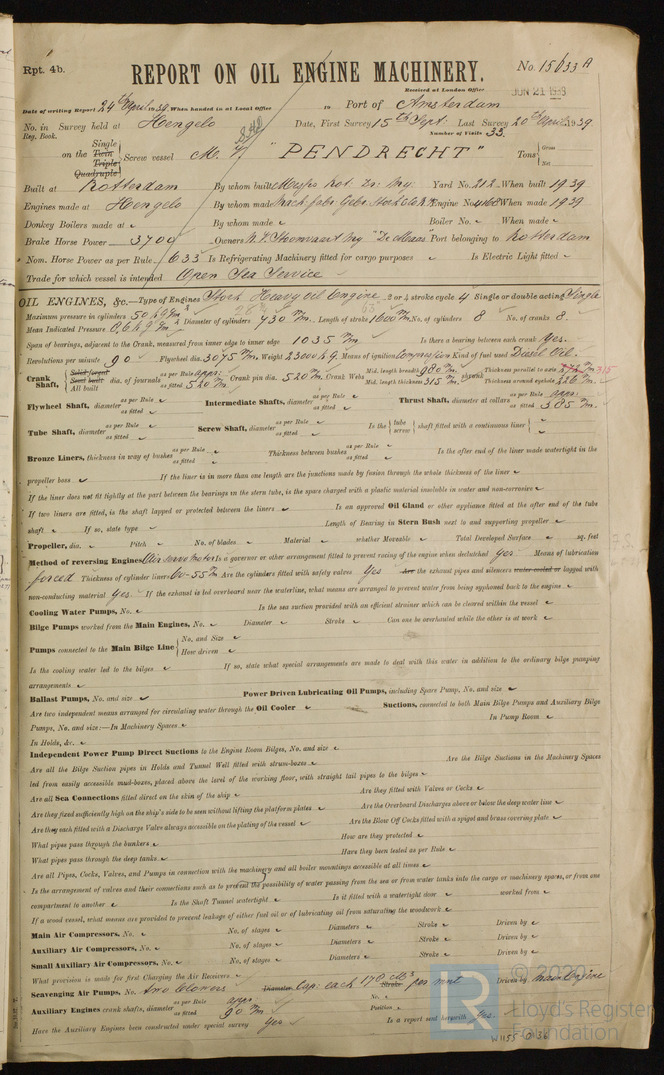 Rpt. 4b.
No. 15633 A
REPORT ON OIL ENGINE MACHINERY.
Received at London Office JUN 21 1939
Date of writing Report 24th April 1939 When handed in at Local Office 19 Port of Amsterdam
No. in Survey held at Hengelo Date, First Survey 15th Sept. Last Survey 20th April 1939
Reg. Book. Number of Visits 33.
on the Single Twin Triple Quadruple Screw vessel M.V. "PENDRECHT" Tons Gross Net
Built at Rotterdam By whom built Messrs Rot. Dr. My. Yard No. 212 When built 1939
Engines made at Hengelo By whom made Mach. fabr. Gebr. Stork & Co. Engine No. 4168 When made 1939
Donkey Boilers made at By whom made Boiler No. When made
Brake Horse Power 3700 Owners N.V. Stoomvaart My "De Maas" Port belonging to Rotterdam
Nom. Horse Power as per Rule 633 Is Refrigerating Machinery fitted for cargo purposes Is Electric Light fitted
Trade for which vessel is intended Open Sea Service
OIL ENGINES, &c.—Type of Engines Stork Heavy Oil Engine 2 or 4 stroke cycle 4 Single or double acting Single
Maximum pressure in cylinders 50 kg/cm² Diameter of cylinders 730 m/m. Length of stroke 1600 m/m. No. of cylinders 8 No. of cranks 8.
Mean Indicated Pressure kg/cm²
Span of bearings, adjacent to the Crank, measured from inner edge to inner edge 1035 m/m. Is there a bearing between each crank Yes.
Revolutions per minute 90 Flywheel dia. 3075 m/m. Weight 2300 kg. Means of ignition Compression Kind of fuel used Diesel Oil.
Crank Shaft, Solid forged Semi built All built dia. of journals as per Rule appr. as fitted 520 m/m. Crank pin dia. 520 m/m. Crank Webs Mid. length breadth 980 m/m. Mid. length thickness 315 m/m. shrunk Thickness parallel to axis 315 Thickness around eyehole 226 m/m.
Flywheel Shaft, diameter as per Rule as fitted Intermediate Shafts, diameter as per Rule as fitted Thrust Shaft, diameter at collars as per Rule appr. as fitted 385 m/m.
Tube Shaft, diameter as per Rule as fitted Screw Shaft, diameter as per Rule as fitted Is the tube screw shaft fitted with a continuous liner
Bronze Liners, thickness in way of bushes as per Rule as fitted Thickness between bushes as per Rule as fitted Is the after end of the liner made watertight in the
propeller boss If the liner is in more than one length are the junctions made by fusion through the whole thickness of the liner
If the liner does not fit tightly at the part between the bearings in the stern tube, is the space charged with a plastic material insoluble in water and non-corrosive
If two liners are fitted, is the shaft lapped or protected between the liners Is an approved Oil Gland or other appliance fitted at the after end of the tube
shaft If so, state type Length of Bearing in Stern Bush next to and supporting propeller
Propeller, dia. Pitch No. of blades Material whether Moveable Total Developed Surface sq. feet
Method of reversing Engines Servo motor Is a governor or other arrangement fitted to prevent racing of the engine when declutched yes. Means of lubrication
forced Thickness of cylinder liners 60-55 m/m Are the cylinders fitted with safety valves Yes Are the exhaust pipes and silencers water cooled or lagged with
non-conducting material yes. If the exhaust is led overboard near the waterline, what means are arranged to prevent water from being syphoned back to the engine
Cooling Water Pumps, No. Is the sea suction provided with an efficient strainer which can be cleared within the vessel
Bilge Pumps worked from the Main Engines, No. Diameter Stroke Can one be overhauled while the other is at work
Pumps connected to the Main Bilge Line No. and Size How driven
Is the cooling water led to the bilges If so, state what special arrangements are made to deal with this water in addition to the ordinary bilge pumping
arrangements
Ballast Pumps, No. and size Power Driven Lubricating Oil Pumps, including Spare Pump, No. and size
Are two independent means arranged for circulating water through the Oil Cooler Suctions, connected to both Main Bilge Pumps and Auxiliary Bilge
Pumps, No. and size:—In Machinery Spaces In Pump Room
In Holds, &c.
Independent Power Pump Direct Suctions to the Engine Room Bilges, No. and size
Are all the Bilge Suction pipes in Holds and Tunnel Well fitted with strum-boxes Are the Bilge Suctions in the Machinery Spaces
led from easily accessible mud-boxes, placed above the level of the working floor, with straight tail pipes to the bilges
Are all Sea Connections fitted direct on the skin of the ship Are they fitted with Valves or Cocks
Are they fixed sufficiently high on the ship's side to be seen without lifting the platform plates Are the Overboard Discharges above or below the deep water line
Are they each fitted with a Discharge Valve always accessible on the plating of the vessel Are the Blow Off Cocks fitted with a spigot and brass covering plate
What pipes pass through the bunkers How are they protected
What pipes pass through the deep tanks Have they been tested as per Rule
Are all Pipes, Cocks, Valves, and Pumps in connection with the machinery and all boiler mountings accessible at all times
Is the arrangement of valves and their connections such as to prevent the possibility of water passing from the sea or from water tanks into the cargo or machinery spaces, or from one
compartment to another Is the Shaft Tunnel watertight Is it fitted with a watertight door worked from
If a wood vessel, what means are provided to prevent leakage of either fuel oil or of lubricating oil from saturating the woodwork
Main Air Compressors, No. No. of stages Diameters Stroke Driven by
Auxiliary Air Compressors, No. No. of stages Diameters Stroke Driven by
Small Auxiliary Air Compressors, No. No. of stages Diameters Stroke Driven by
What provision is made for first Charging the Air Receivers
Scavenging Air Pumps, No. two blowers Diameter Cap: each 170 M³ Stroke per mnt Driven by main Engine
Auxiliary Engines crank shafts, diameter as per Rule appr. as fitted 90 m/m. No. Position
Have the Auxiliary Engines been constructed under special survey Yes Is a report sent herewith Yes.
© 2020
LR
Lloyd's Register
Foundation
W1155-0136